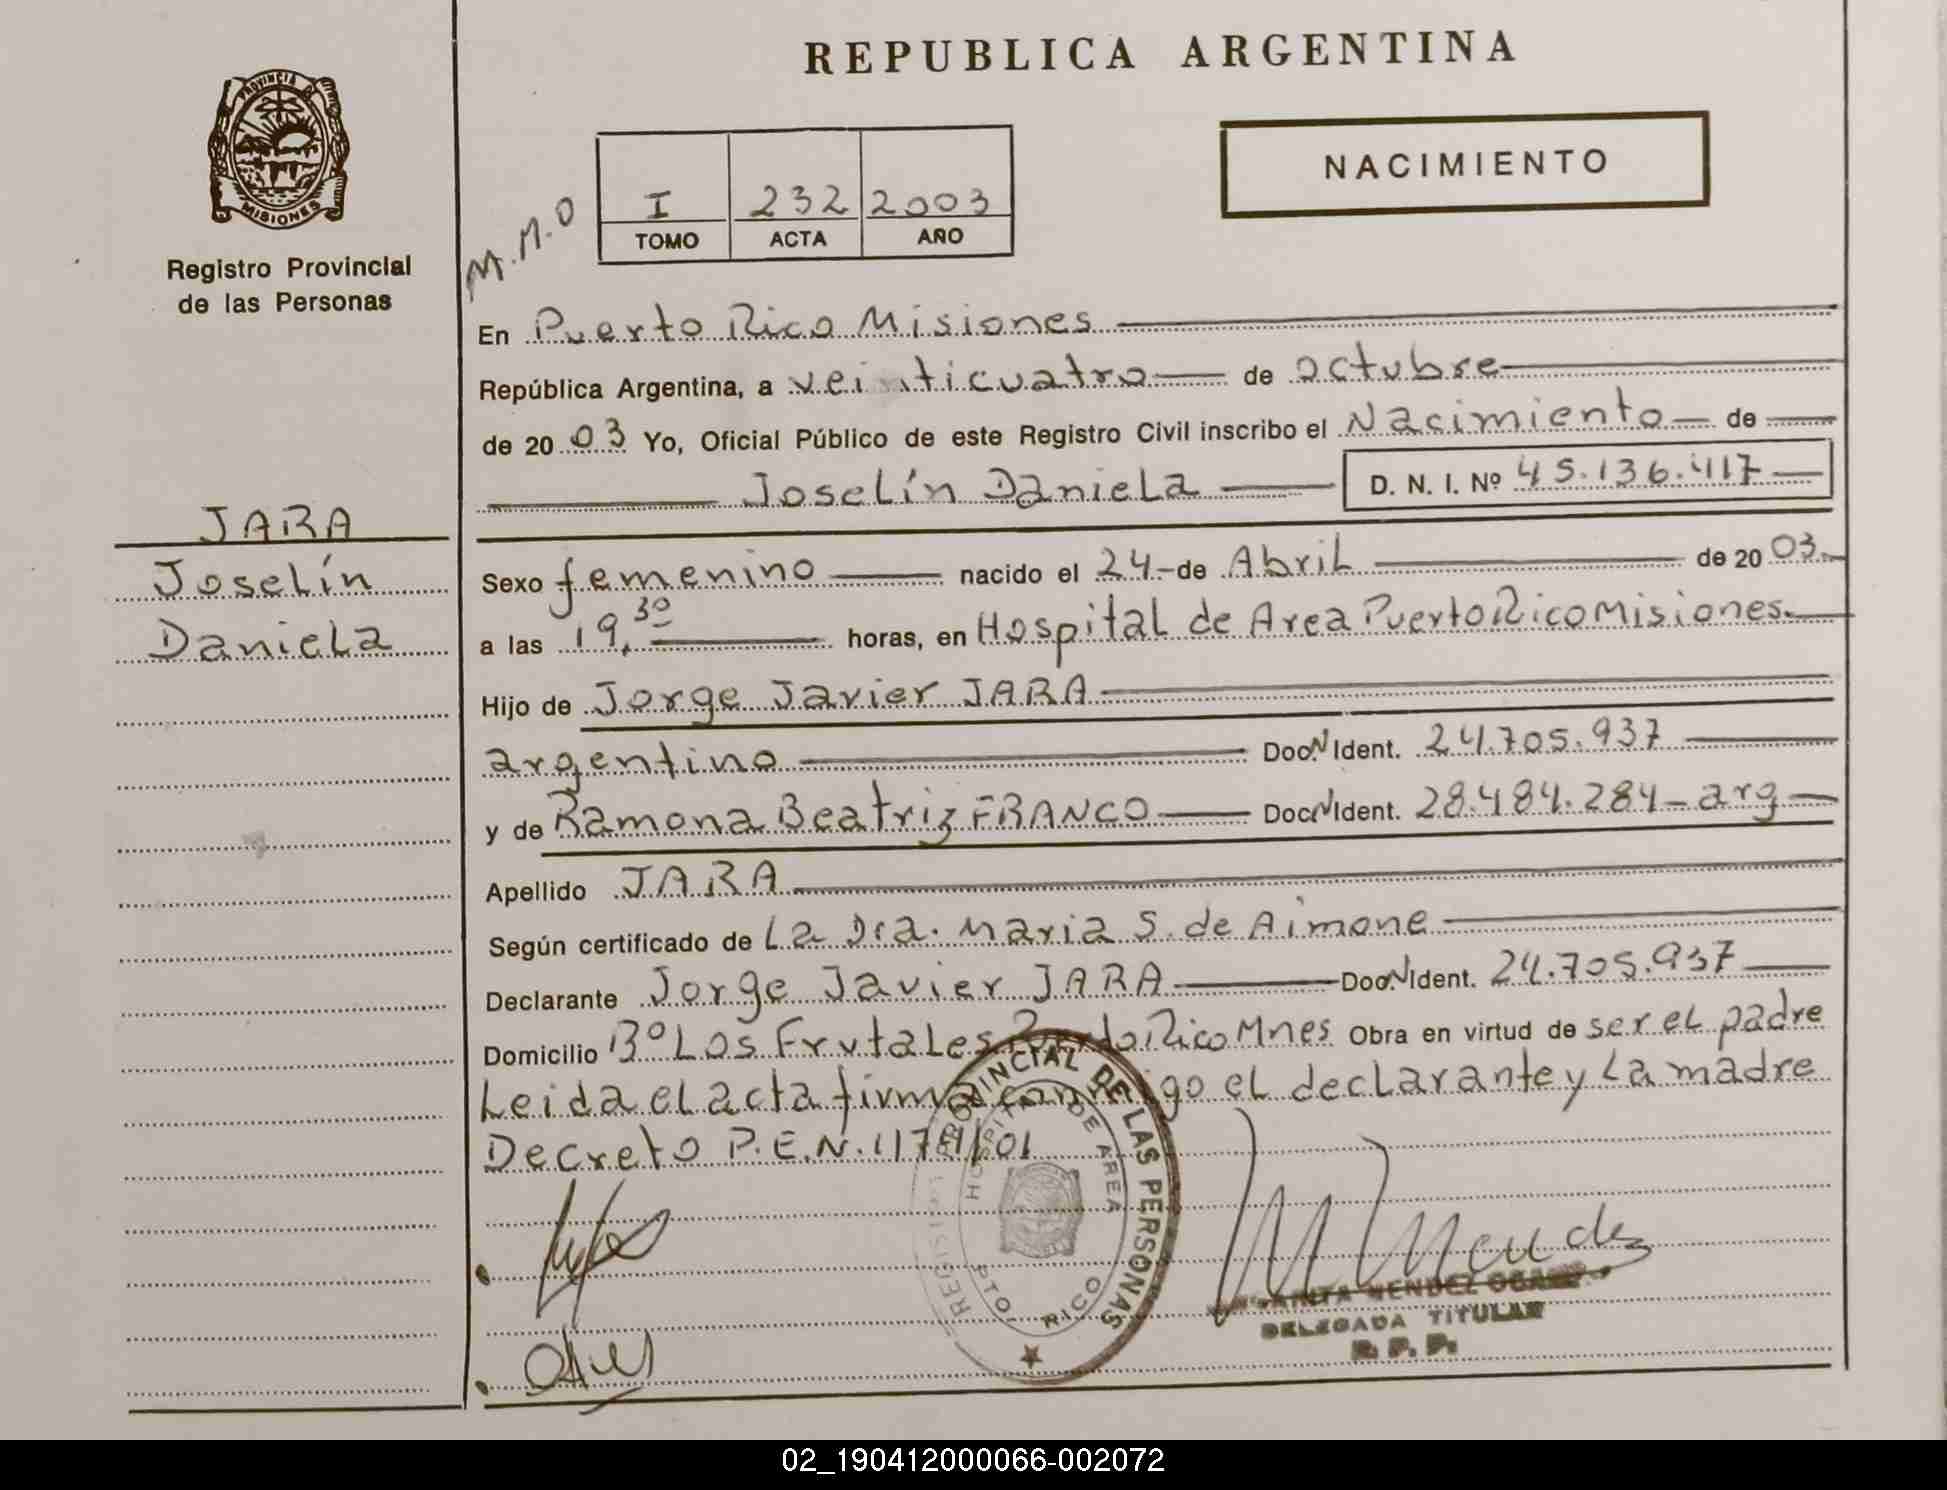 REPUBLICA ARGENTINA
PROVINCIA DE
MISIONES
Registro Provincial
de las Personas
NACIMIENTO
M.M.O
I 232 2003
TOMO ACTA AÑO
En Puerto Rico Misiones
República Argentina, a veinticuatro de octubre
de 20 03 Yo, Oficial Público de este Registro Civil inscribo el Nacimiento de
Joselín Daniela D. N. I. Nº 45.136.417
JARA
Joselín
Daniela
Sexo femenino nacido el 24 de Abril de 20 03
a las 19,30 horas, en Hospital de Area Puerto Rico Misiones.
Hijo de Jorge Javier JARA
argentino Doc. N Ident. 24.705.937
y de Ramona Beatriz FRANCO Doc. N Ident. 28.484.284 - arg
Apellido JARA
Según certificado de La Dra. Maria S. de Aimone
Declarante Jorge Javier JARA Doc. N Ident. 24.705.937
Domicilio Bº Los Frutales Puerto Rico Mnes Obra en virtud de ser el padre
Leida el acta firma conmigo el declarante y La madre
Decreto P.E.N. 1174/01
REGISTRO PROVINCIAL DE LAS PERSONAS
HOSPITAL DE AREA
PTO. RICO
M Mendez
MENDEZ
DELEGADA TITULAR
R. P. P.
02_190412000066-002072